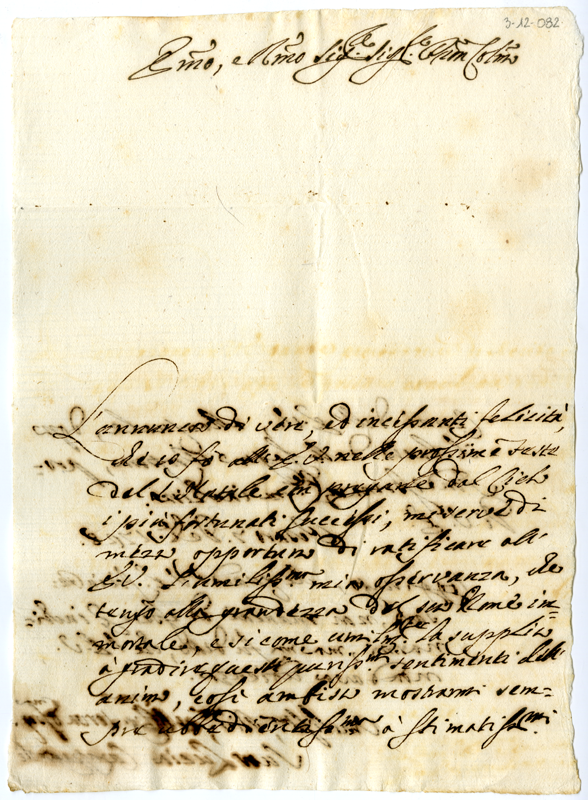 3-12-082
Emo, e Rmo Sigre Sigre Pron Colmo
L'annuncio di vere, ed incessanti felicità,
che io fò all'E.V. nelle prossime Feste
del S. Natale con pregarle dal Cielo
i più fortunati successi, mi serve di
mezzo opportuno di ratificare all'
E.V. l'umilissma mia osservanza, che
tengo alla grandezza del suo Nome im=
mortale, e si come umilmte la supplico
à gradire questi purissmi sentimenti dell'
animo, così ambisco mostrarmi sem=
pre ubbidientissmo à stimatissmi